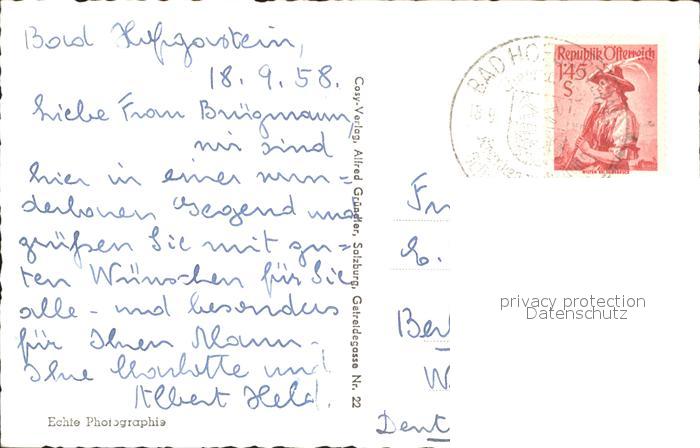 Bad Hofgastein,
18. 9. 58.
Liebe Frau Brügmann,
wir sind
hier in einer wun=
derbaren Gegend und
grüßen Sie mit gu=
ten Wünschen für Sie
alle - und besonders
für Ihren Mann -
Ihre Charlotte und
Albert Held.
Echte Photographie
Cosy-Verlag, Alfred Gründler, Salzburg, Getreidegasse Nr. 22
BAD HOF
Republik Österreich
1'45
S
Fr
E.
Ber
W
Deut
privacy protection
Datenschutz